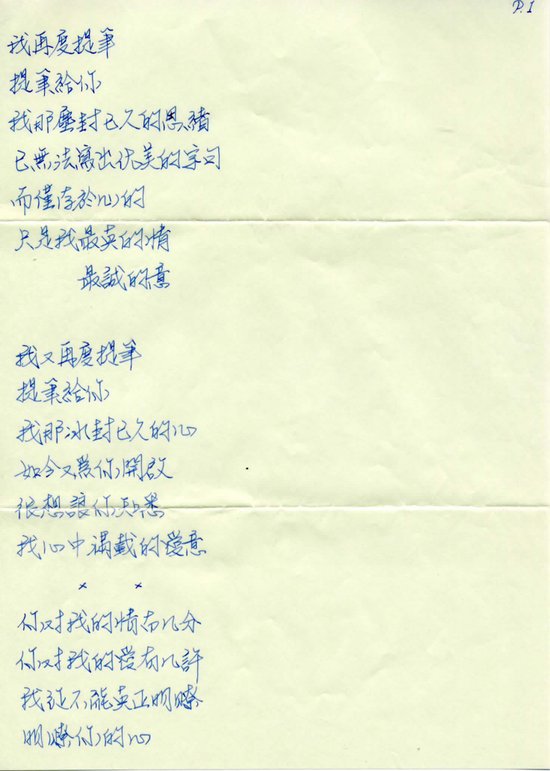 P.1
我再度提筆
提筆給你
我那塵封已久的思緒
已無法寫出优美的字句
而僅存於心的
只是我最真的情
最誠的意
我又再度提筆
提筆給你
我那冰封已久的心
如今又為你開啟
很想讓你知悉
我心中滿載的愛意
× ×
你对我的情有几分
你对我的愛有几許
我从不能真正明瞭
明瞭你的心